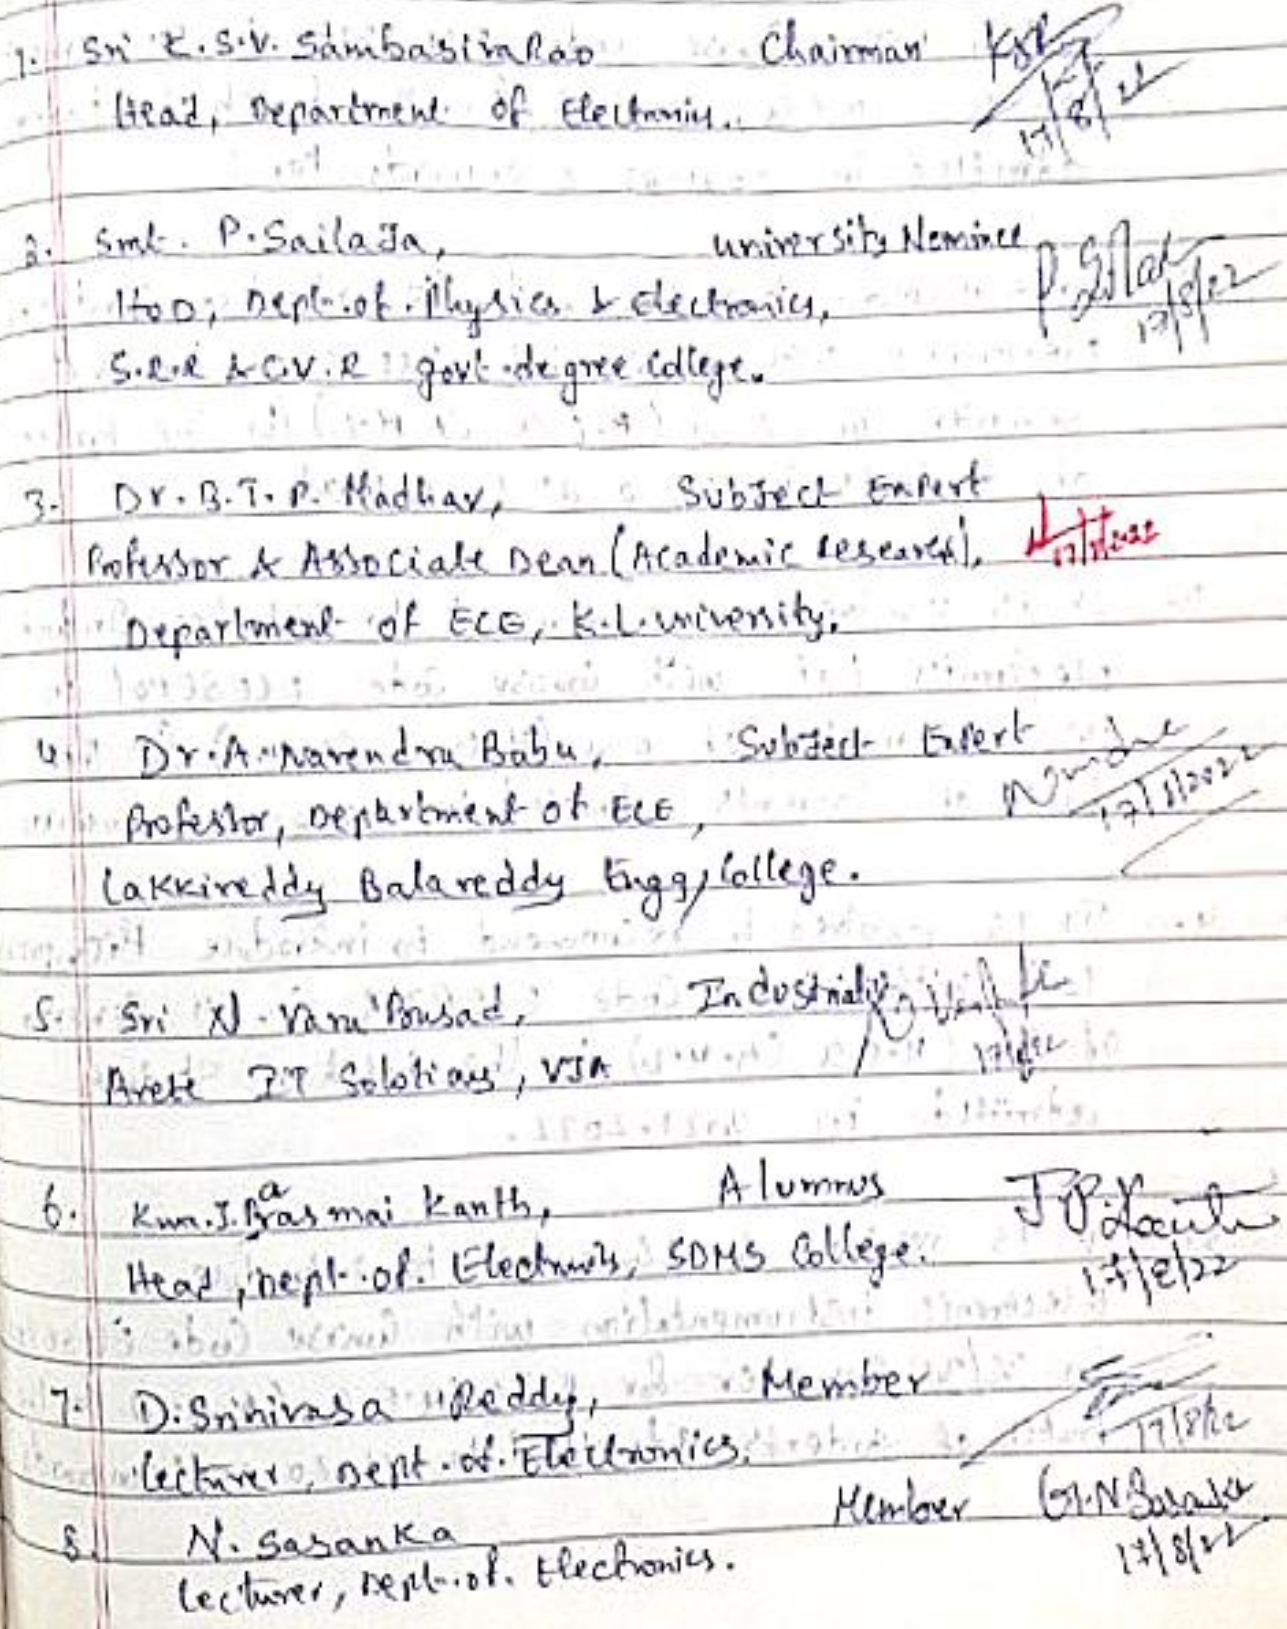 1. Sri K.S.V. SambasivaRao Chairman
17/8/22
Head, Department of Electronics.
2. Smt. P. Sailaja, University Nominee
HOD, Dept. of. Physics & Electronics,
17/8/22
S.R.R & C.V.R govt. degree College.
3. Dr. B.T.P. Madhav, Subject Expert
Professor & Associate Dean (Academic Research), 17/8/2022
Department of ECE, K.L. University.
4. Dr. A. Narendra Babu, Subject Expert
Professor, Department of ECE, 17/8/2022
Lakkireddy Balareddy Engg, College.
5. Sri N. Prasad, Industrialist
Arete IT Solutions, VJA 17/8/22
6. Kum. J. Parasmai Kanth, Alumnus J.P. Kanth
Head, Dept. of. Electronics, SDMS College. 17/8/22
7. D. Srinivasa Reddy, Member
Lecturer, Dept. of. Electronics. 17/8/22
8. N. Sasanka Member G.N. Sasanka
Lecturer, Dept. of. Electronics. 17/8/22